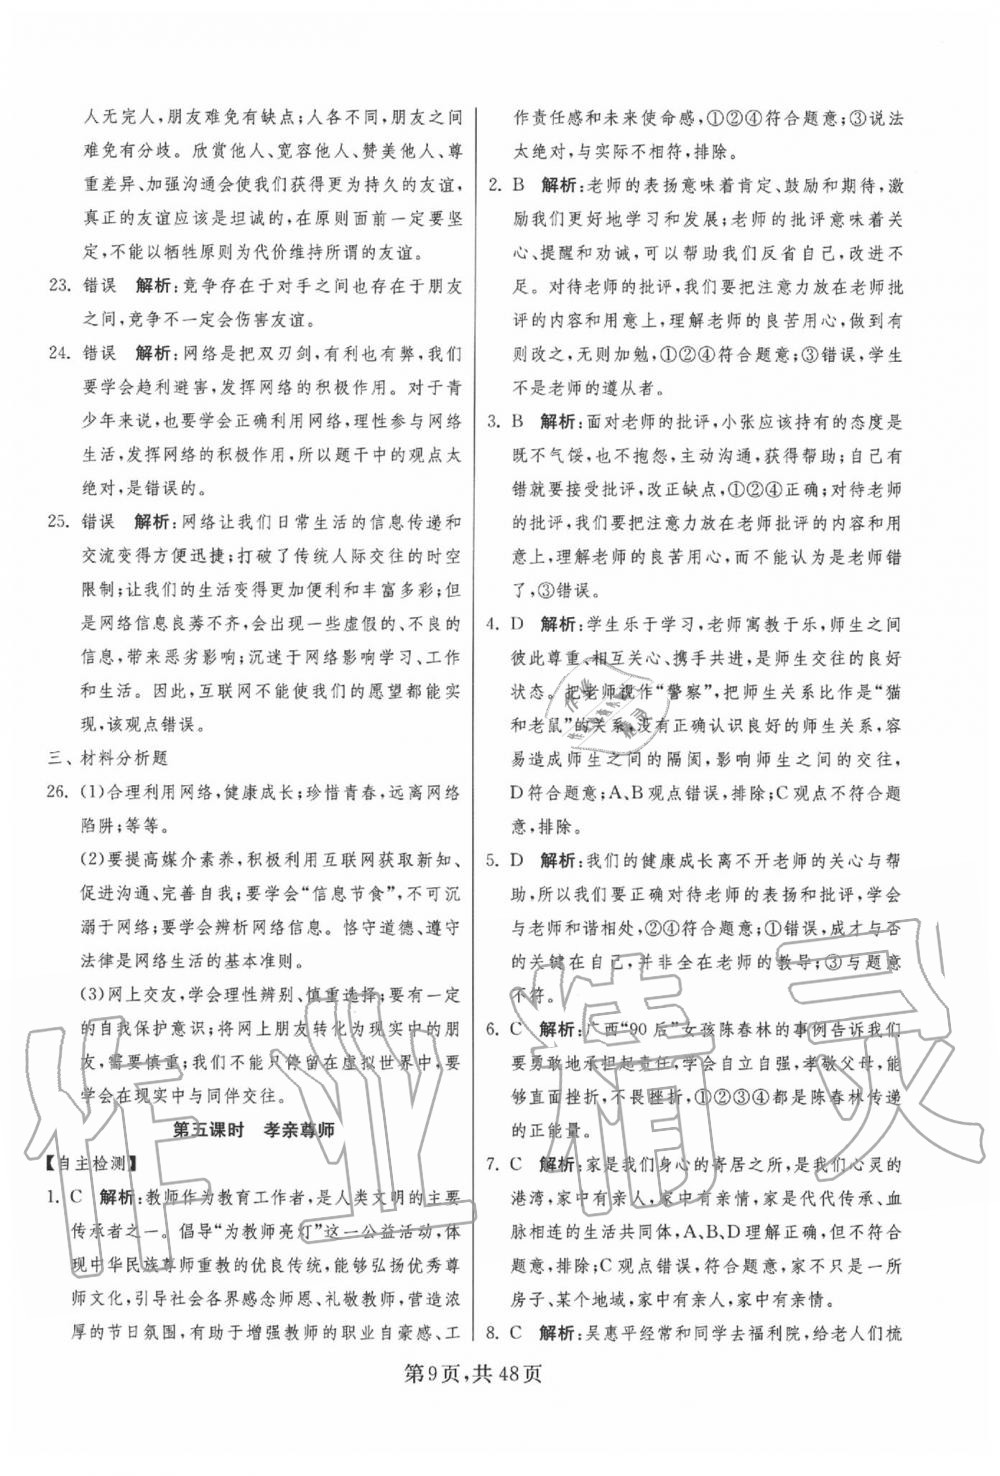 人无完人，朋友难免有缺点；人各不同，朋友之间
难免有分歧。欣赏他人、宽容他人、赞美他人、尊
重差异、加强沟通会使我们获得更为持久的友谊，
真正的友谊应该是坦诚的，在原则面前一定要坚
定，不能以牺牲原则为代价维持所谓的友谊。
23. 错误　解析：竞争存在于对手之间也存在于朋友
之间，竞争不一定会伤害友谊。
24. 错误　解析：网络是把双刃剑，有利也有弊，我们
要学会趋利避害，发挥网络的积极作用。对于青
少年来说，也要学会正确利用网络，理性参与网络
生活，发挥网络的积极作用，所以题干中的观点太
绝对，是错误的。
25. 错误　解析：网络让我们日常生活的信息传递和
交流变得方便迅捷；打破了传统人际交往的时空
限制；让我们的生活变得更加便利和丰富多彩；但
是网络信息良莠不齐，会出现一些虚假的、不良的
信息，带来恶劣影响；沉迷于网络影响学习、工作
和生活。因此，互联网不能使我们的愿望都能实
现，该观点错误。
三、材料分析题
26. (1)合理利用网络，健康成长；珍惜青春，远离网络
陷阱；等等。
(2)要提高媒介素养，积极利用互联网获取新知、
促进沟通、完善自我；要学会“信息节食”，不可沉
溺于网络；要学会辨析网络信息。恪守道德、遵守
法律是网络生活的基本准则。
(3)网上交友，学会理性辨别、慎重选择；要有一定
的自我保护意识；将网上朋友转化为现实中的朋
友，需要慎重；我们不能只停留在虚拟世界中，要
学会在现实中与同伴交往。
第五课时　孝亲尊师
【自主检测】
1. C　解析：教师作为教育工作者，是人类文明的主要
传承者之一。倡导“为教师亮灯”这一公益活动，体
现中华民族尊师重教的优良传统，能够弘扬优秀尊
师文化，引导社会各界感念师恩、礼敬教师，营造浓
厚的节日氛围，有助于增强教师的职业自豪感、工
作责任感和未来使命感，①②④符合题意；③说法
太绝对，与实际不相符，排除。
2. B　解析：老师的表扬意味着肯定、鼓励和期待，激
励我们更好地学习和发展；老师的批评意味着关
心、提醒和劝诫，可以帮助我们反省自己，改进不
足。对待老师的批评，要把注意力放在老师批
评的内容和用意上，理解老师的良苦用心，做到有
则改之，无则加勉，①②④符合题意；③错误，学生
不是老师的遵从者。
3. B　解析：面对老师的批评，小张应该持有的态度是
既不气馁，也不抱怨，主动沟通，获得帮助；自己有
错就要接受批评，改正缺点，①②④正确；对待老师
的批评，我们要把注意力放在老师批评的内容和用
意上，理解老师的良苦用心，而不能认为是老师错
了，③错误。
4. D　解析：学生乐于学习，老师寓教于乐，师生之间
彼此尊重、互相关心、携手共进，是师生交往的良好
状态。把老师视作“警察”，把师生关系比作是“猫
和老鼠”的关系，没有正确认识良好的师生关系，容
易造成师生之间的隔阂，影响师生之间的交往，
D符合题意；A、B观点错误，排除；C观点不符合题
意，排除。
5. D　解析：我们的健康成长离不开老师的关心与帮
助，所以我们要正确对待老师的表扬和批评，学会
与老师和谐相处，②④符合题意；①错误，成才与否
的关键在自己，并非全在老师的教导；③与题意
不符。
6. C　解析：广西“90后”女孩陈春林的事例告诉我们
要勇敢地承担起责任，学会自立自强，孝敬父母，能
够直面挫折，不畏惧挫折，①②③④都是陈春林传递
的正能量。
7. C　解析：家是我们身心的寄居之所，是我们心灵的
港湾，家中有亲人，家中有亲情，家是代代传承、血
脉相连的生活共同体，A、B、D理解正确，但不符合
题意，排除；C观点错误，符合题意，家不只是一所
房子、某个地域，家中有亲人，家中有亲情。
8. C　解析：吴惠平经常和同学去福利院，给老人们梳
第9页，共48页
作业精灵